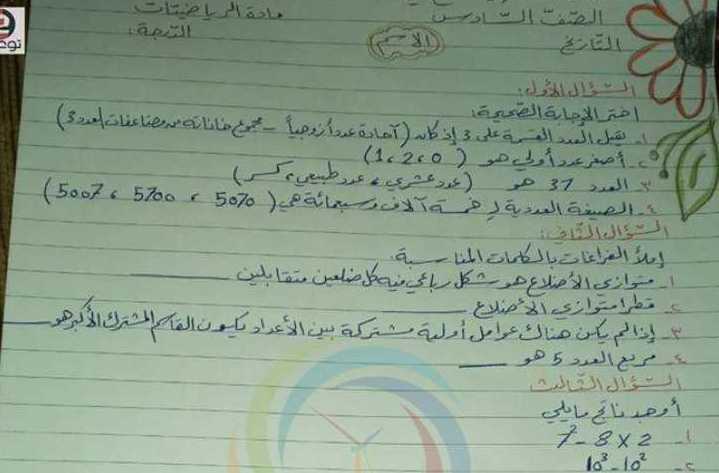 الصفّ السّادس
مادة الرياضيّات
التّاريخ
الاسم
الدّرجة:
السّؤال الأول:
اختر الإجابة الصّحيحة:
1- يقبل العدد القسمة على 3 إذا كان (آحادة عدداً زوجياً - مجموع خاناته من مضاعفات العدد 3)
2- أصغر عدد أولي هو (0، 2، 1)
3- العدد 37 هو (عدد عشري، عدد طبيعي، كسر)
4- الصيغة العددية لـ خمسة آلاف وسبعمائة هي (5070 ، 5700 ، 5007)
السّؤال الثّاني:
إملأ الفراغات بالكلمات المناسبة:
1- متوازي الأضلاع هو شكل رباعي فيه كل ضلعين متقابلين ______
2- قطرا متوازي الأضلاع ______
3- إذا لم يكن هناك عوامل أولية مشتركة بين الأعداد يكون القاسم المشترك الأكبر هو ______
4- مربع العدد 5 هو ____
السّؤال الثّالث
أوجد ناتج مايلي
1- 7² - 8 × 2
2- 10³ - 10²